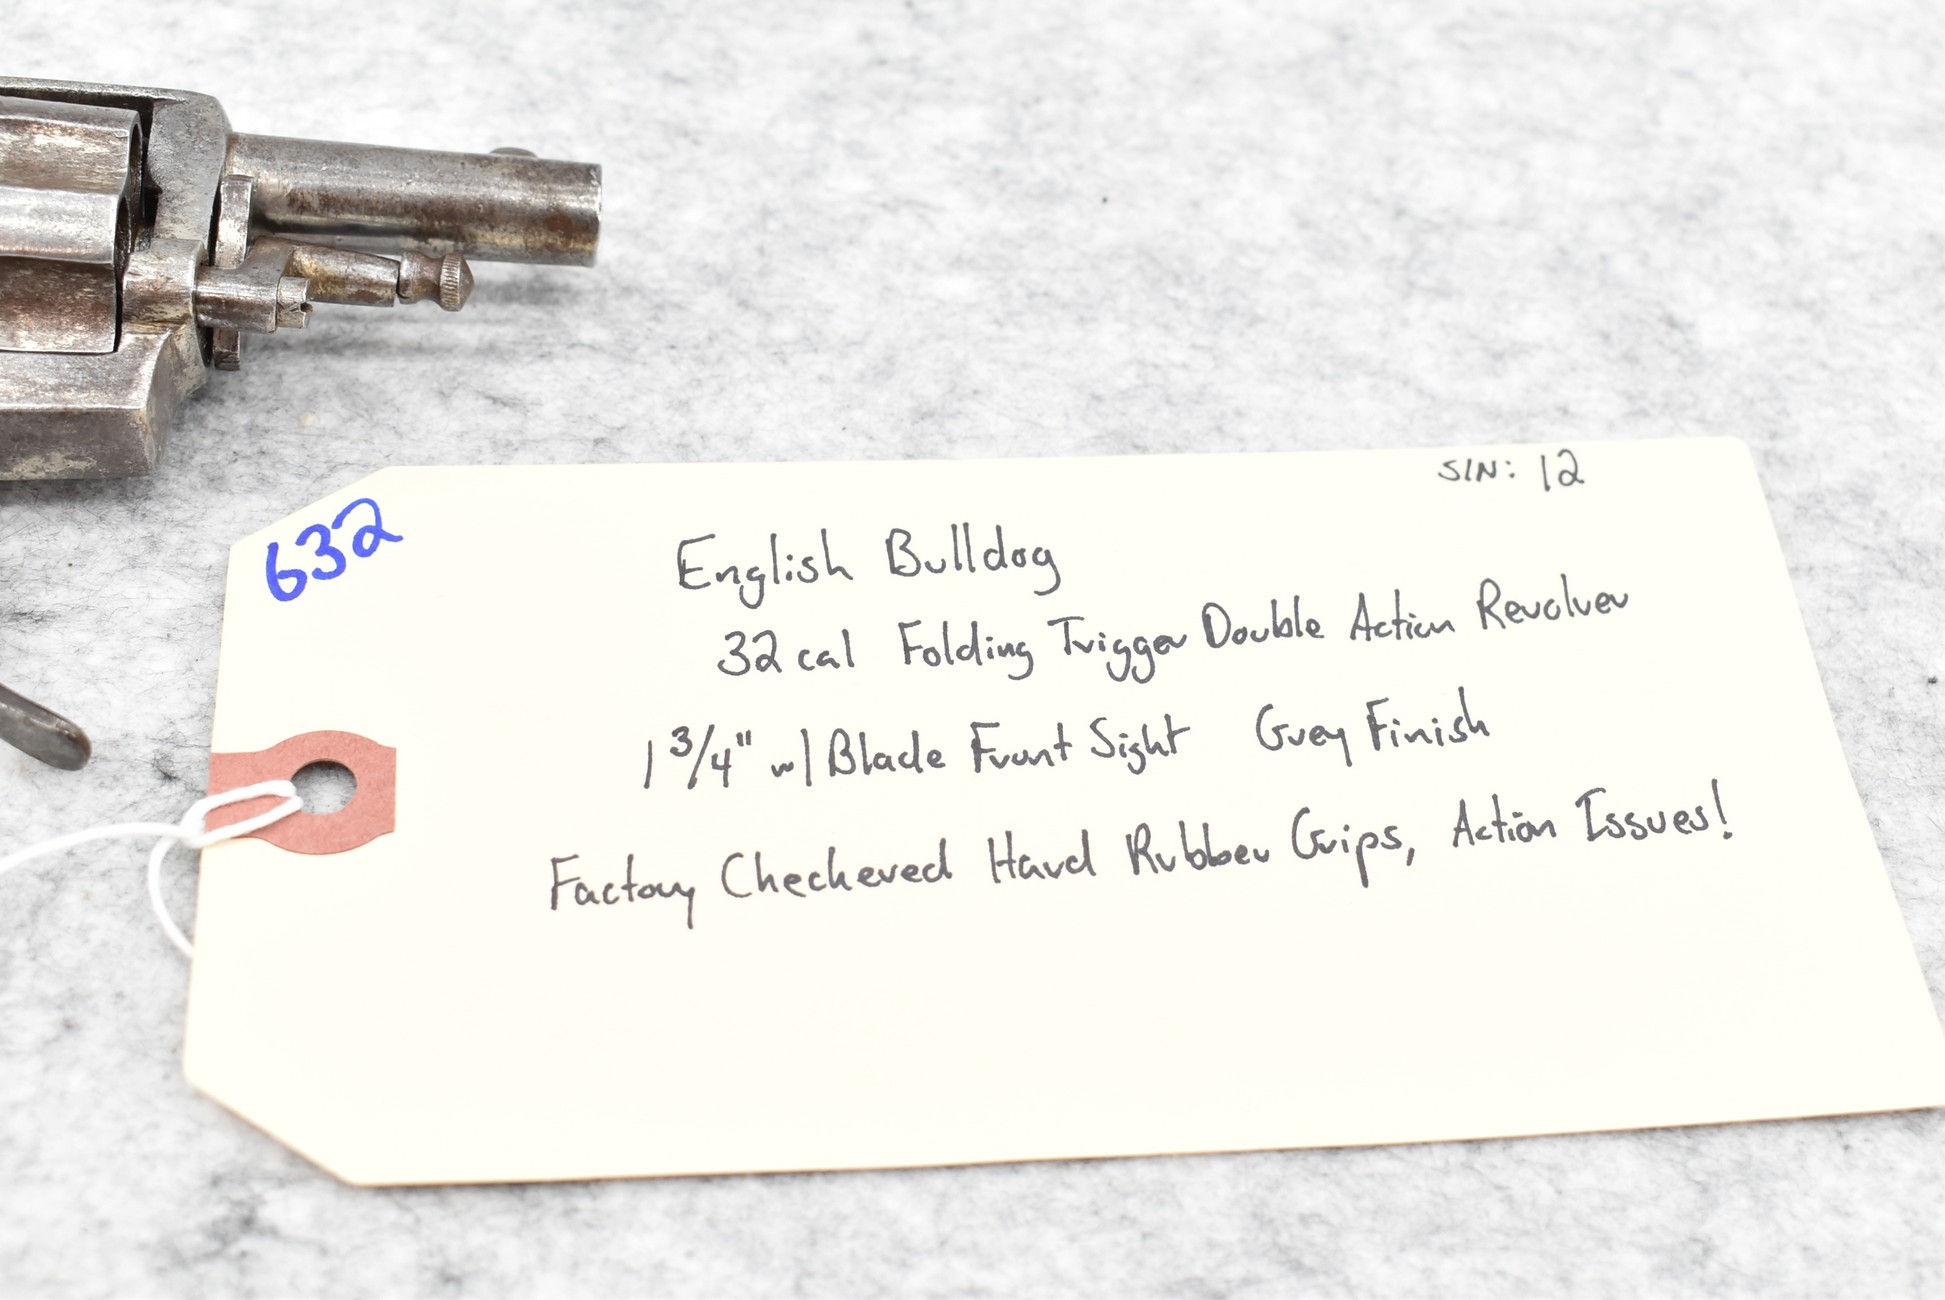 S/N: 12
632
English Bulldog
32 cal Folding Trigger Double Action Revolver
1 3/4" w/ Blade Front Sight Grey Finish
Factory Checkered Hard Rubber Grips, Action Issues!